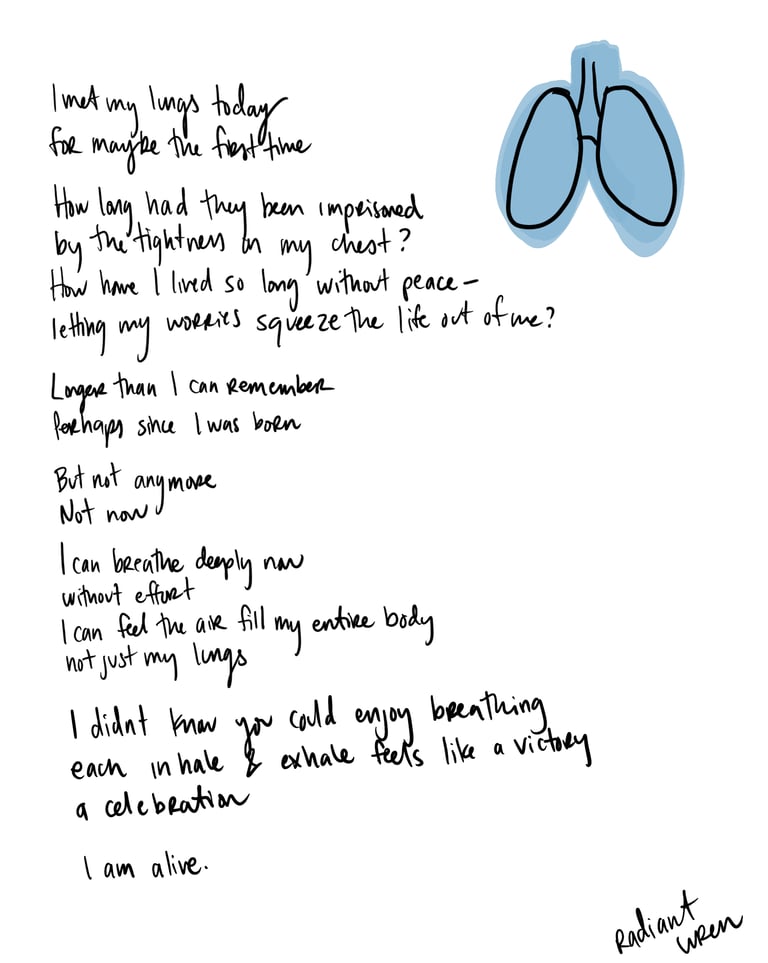 I met my lungs today
for maybe the first time
How long had they been imprisoned
by the tightness in my chest?
How have I lived so long without peace –
letting my worries squeeze the life out of me?
Longer than I can remember
Perhaps since I was born
But not anymore
Not now
I can breathe deeply now
without effort
I can feel the air fill my entire body
not just my lungs
I didnt know you could enjoy breathing
each inhale & exhale feels like a victory
a celebration
I am alive.
Radiant
Wren